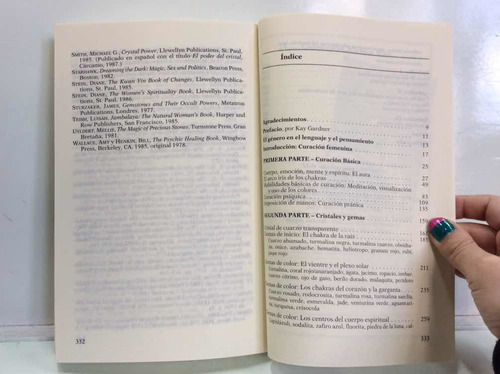 SMITH, MICHAEL G., Crystal Power, Llewellyn Publications, St. Paul,
1985. (Publicado en español con el título El poder del cristal,
Cárcamo, 1987.)
STARHAWK, Dreaming the Dark: Magic, Sex and Politics, Beacon Press,
Boston, 1982.
STEIN, DIANE, The Kwan Yin Book of Changes, Llewellyn Publica-
tions, St. Paul, 1985.
STEIN, DIANE, The Women's Spirituality Book, Llewellyn Publica-
tions, St. Paul, 1986.
STURZAKER, JAMES, Gemstones and Their Occult Powers, Metatron
Publications, Londres, 1977.
TEISH, LUISAH, Jambalaya: The Natural Woman's Book, Harper and
Row Publishers, San Francisco, 1985.
UYLDERT, MELLIE, The Magic of Precious Stones, Turnstone Press, Gran
Bretaña, 1981
WALLACE, AMY y HENKIN, BILL, The Psychic Healing Book, Wingbow
Press, Berkeley, CA, 1985, original 1978.
332
Índice
Agradecimientos
Prefacio, por Kay Gardner 11
El género en el lenguaje y el pensamiento 13
Introducción: Curación femenina 15
PRIMERA PARTE – Curación Básica
Cuerpo, emoción, mente y espíritu: El aura 27
El arco iris de los chakras 49
Habilidades básicas de curación: Meditación, visualización
y uso de los colores 83
Curación psíquica 109
Imposición de manos: Curación pránica 135
SEGUNDA PARTE – Cristales y gemas
cristal de cuarzo transparente 159
Gemas de inicio: El chakra de la raíz 185
Cuarzo ahumado, turmalina negra, turmalina verde, obsidia-
na, ónice, azabache, hematita, heliotropo, granate rojo, rubí,
jaspe rojo
Gemas de color: El vientre y el plexo solar 211
Turmalina, coral rojo/anaranjado, ágata, jacinto, topacio, ámbar,
cuarzo citrino, ojo de gato, berilo dorado, malaquita, peridoto
Gemas de color: Los chakras del corazón y la garganta 235
Cuarzo rosado, rodocrosita, turmalina rosa, turmalina sandía,
turmalina verde, esmeralda, jade, venturina verde, aguamari-
na, turquesa, crisocola
Gemas de color: Los centros del cuerpo espiritual 259
Lapislázuli, sodalita, zafiro azul, fluorita, piedra de la luna, cal-
333